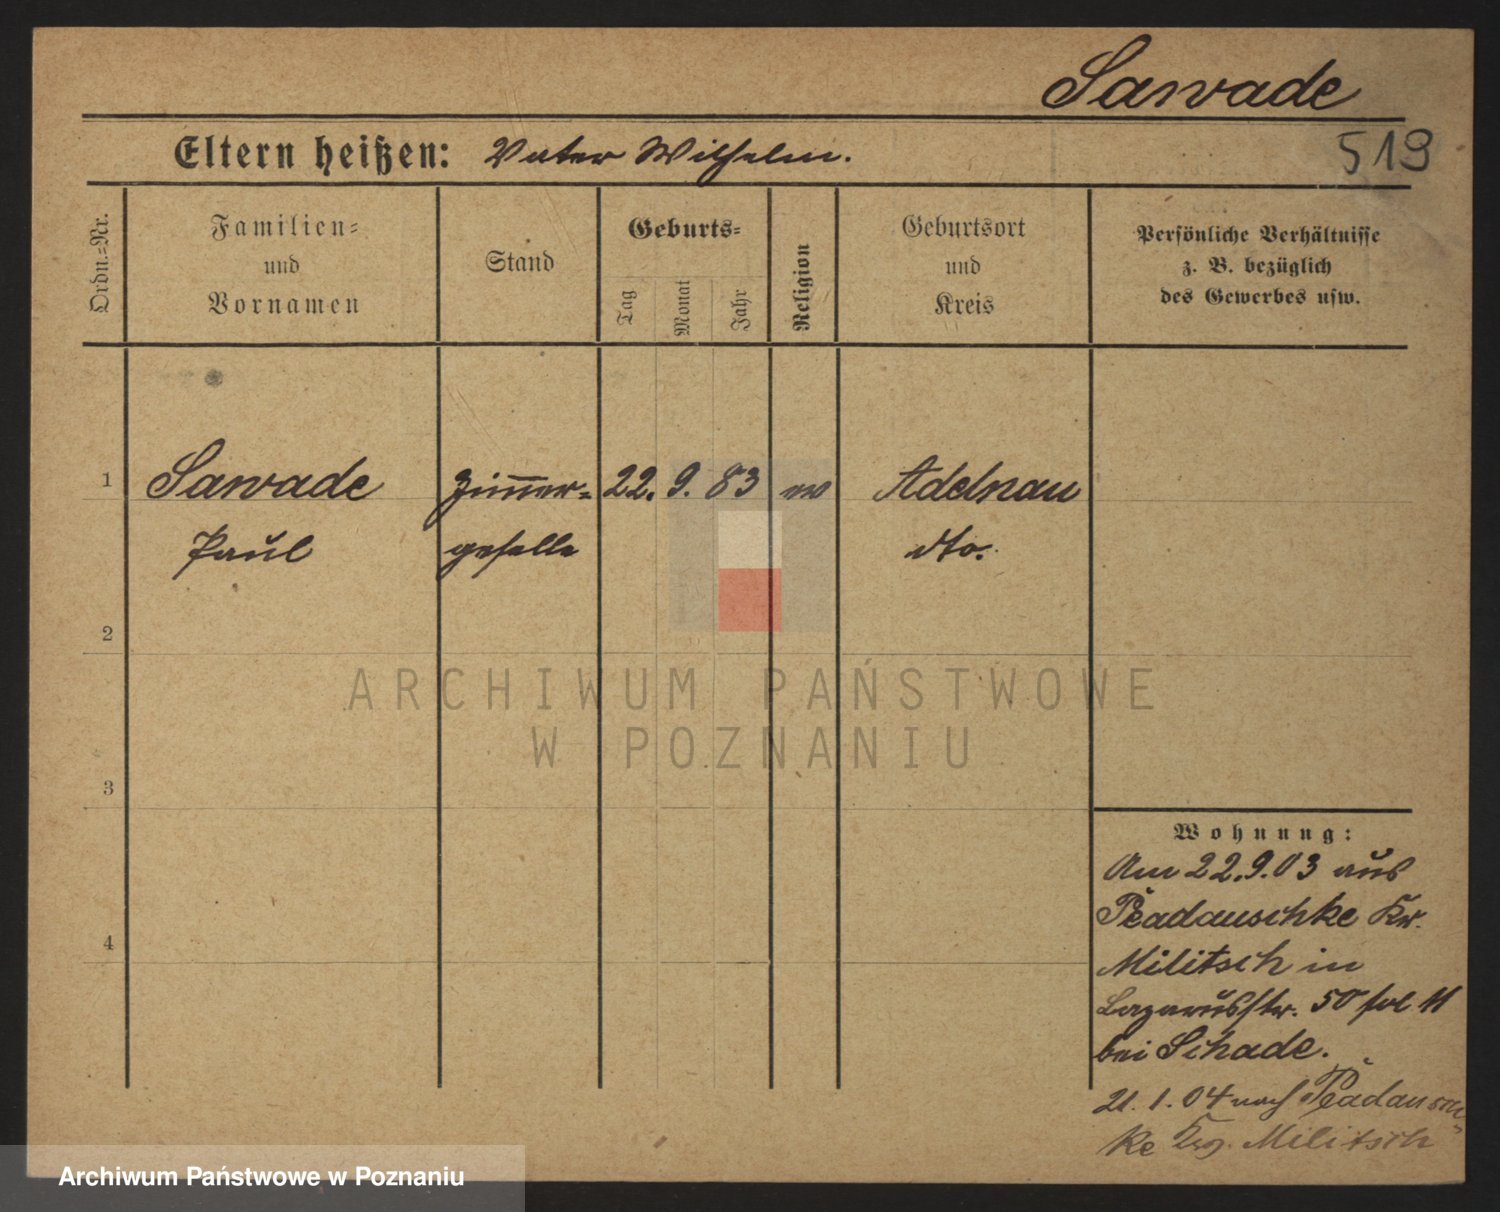 Sawade
519
Eltern heißen: Vater Wilhelm.
Ordn.-Nr.
Familien-
und
Vornamen
Stand
Geburts-
Tag
Monat
Jahr
Religion
Geburtsort
und
Kreis
Persönliche Verhältnisse
z. B. bezüglich
des Gewerbes usw.
1 Sawade Zim̅er- 22. 9. 83 Adelnau
Paul geselle dto.
2
ARCHIWUM PAŃSTWOWE
W POZNANIU
3
4
Wohnung:
Am 22.9.03 aus
Peadauschke Kr.
Militsch in
Lazarusstr. 50
bei Schade.
21.1.04 nach Peadausch-
ke Krs. Militsch
Archiwum Państwowe w Poznaniu